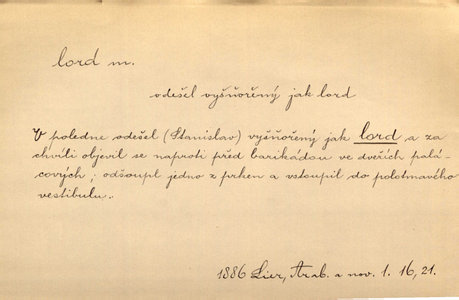 lord m.
odešel vyšňořený jak lord
V poledne odešel (Stanislav) vyšňořený jak lord a za
chvíli objevil se naproti před barikádou ve dveřích palá-
cových; odšoupl jedno z prken a vstoupil do polotmavého
vestibulu.
1886 Lier, Arab. a nov. 1. 16, 21.